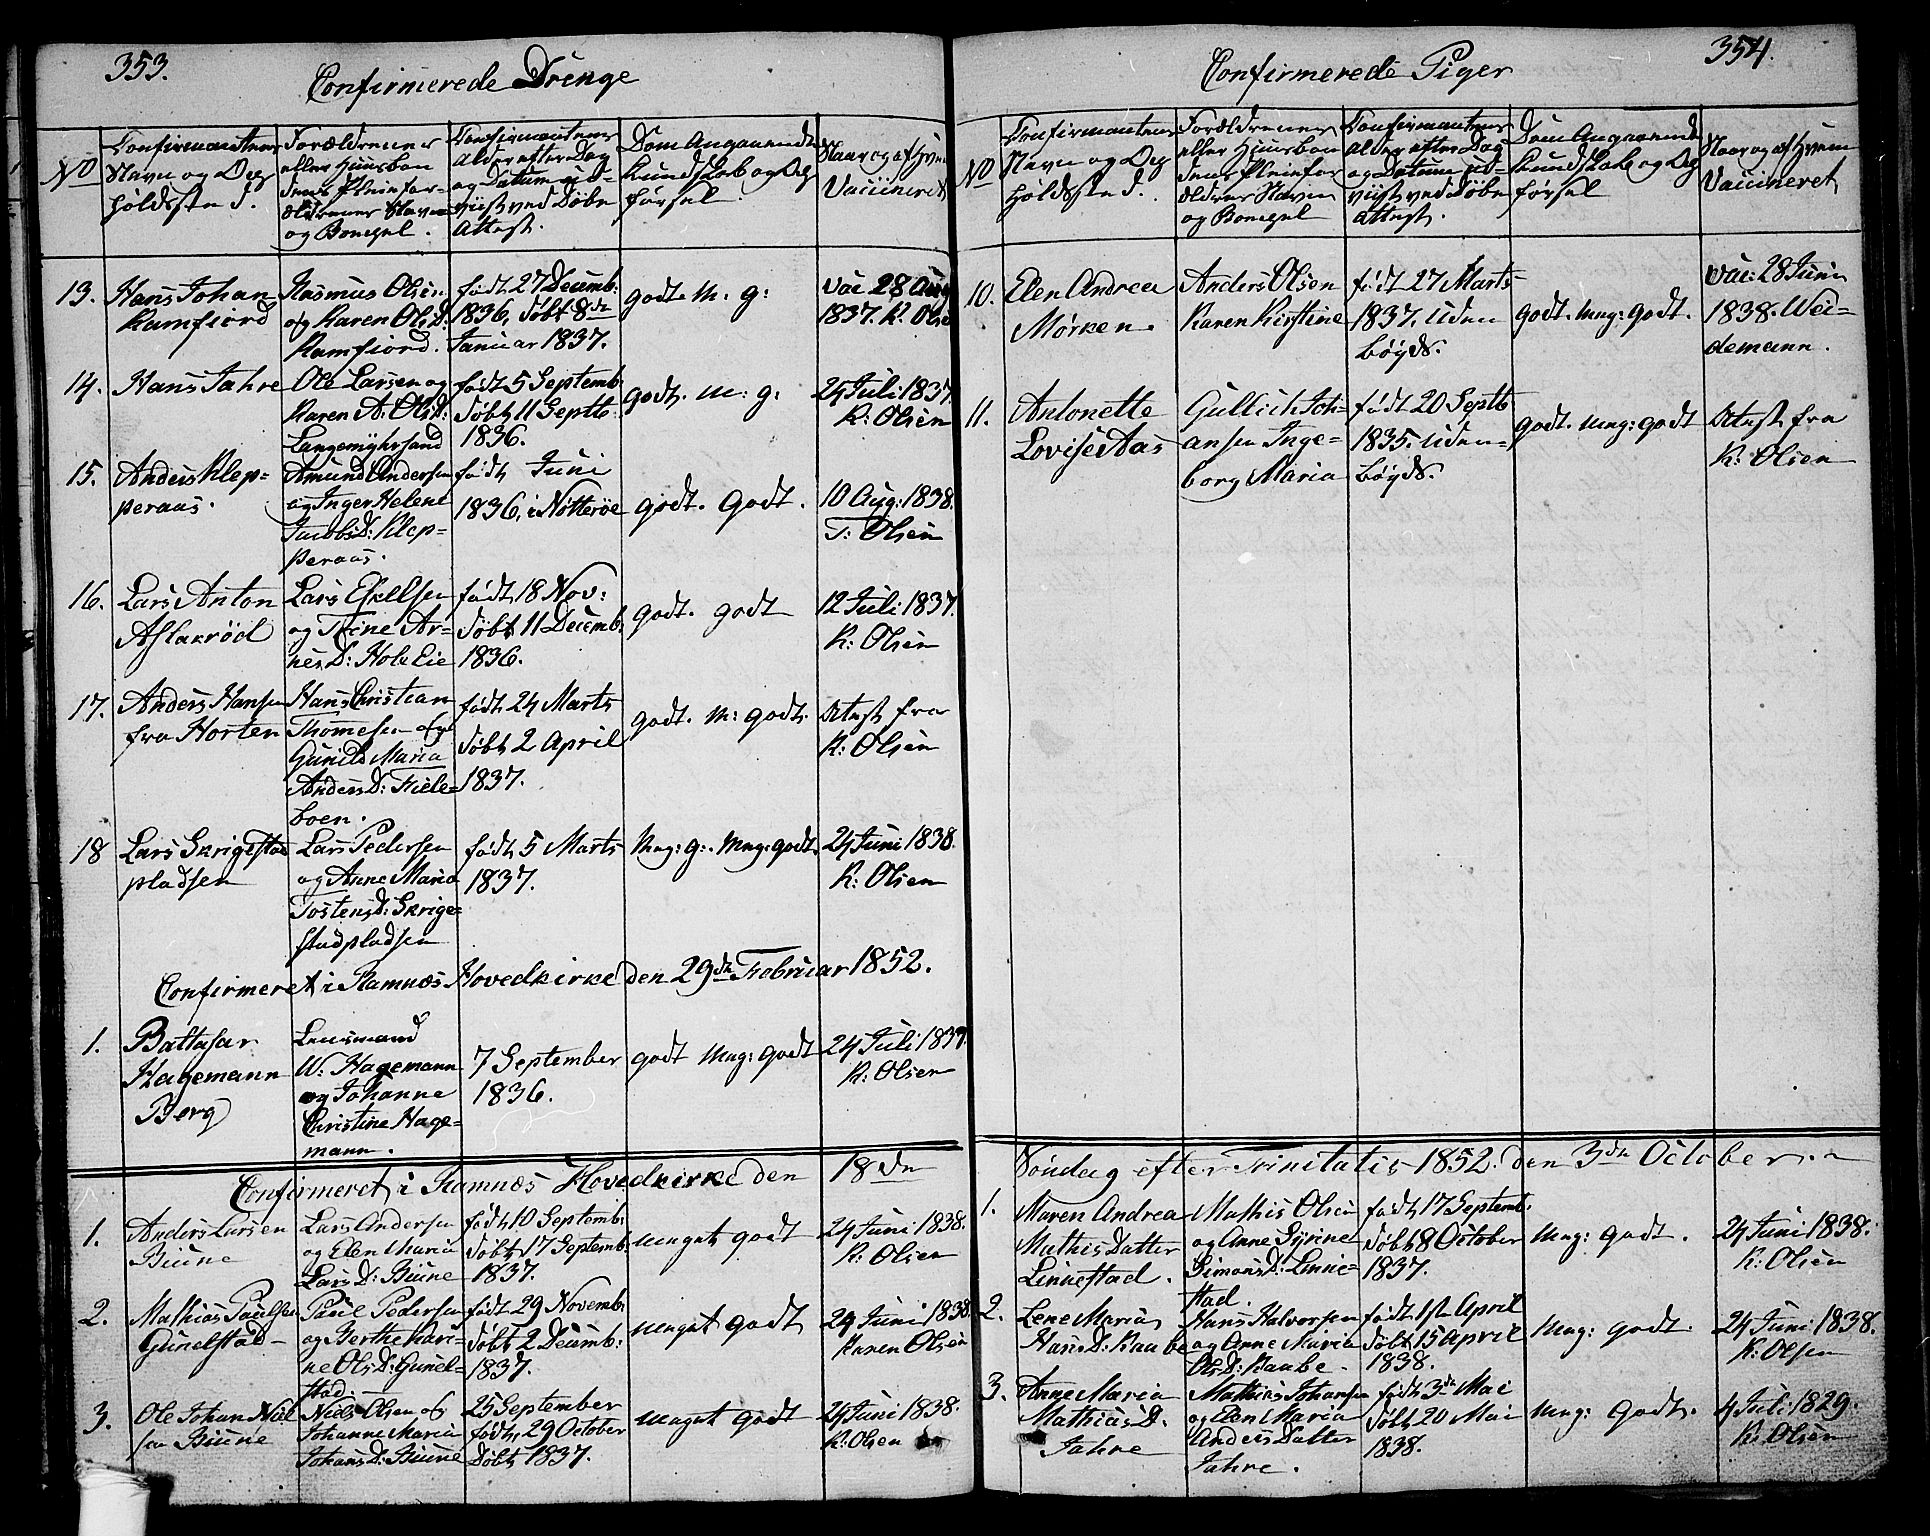 353.
Confirmerede Drenge
No
Confirmantens
Navn og Op-
holdssted.
Forældrenes
eller Huusbon
dens Pleiefor-
ældrenes Navn
og Bopæl.
Confirmantens
Alder efter Dag
og Datum ud-
viist ved Døbe
Attest.
Dom Angaaende
Kundskab og Op
førsel.
Naar og af Hvem
Vaccineret
13.
Hans Johan
Ramfiord
Rasmus Olsen
og Karen Ols D:
Ramfiord.
født 27 Decemb:
1836, døbt 8de
Januar 1837.
godt. M: g:
Vac 28 Aug
1837. K: Olsen
14.
Hans Jahre
Ole Larsen og
Karen A. Ols D:
Langemyhrsand
født 5 Septemb.
døbt 11 Septb.
1836.
godt. M: g:
24 Juli 1837.
K: Olsen
15.
Anders Klep-
peraas.
Amund Andersen
og Inger Helene
Jacobs D: Klep-
peraas.
født Juni
1836, i Nøtterøe
godt. godt.
10 Aug: 1838.
T: Olsen
16.
Lars Anton
Aslakrød
Lars Eskelsen
og Trine Ar-
nes D: Holt Eie
født 18 Nov:
døbt 11 Decemb:
1836.
godt. godt
12 Juli 1837.
K: Olsen
17.
Anders Hansen
fra Horten
Hans Christian
Thomesen og
Gunild Maria
Anders D: Fiele-
boen.
født 24 Marts
døbt 2 April
1837.
godt. M: godt.
Attest fra
K: Olsen
18
Lars Skrigestad
pladsen
Lars Pedersen
og Anne Maria
Tostens D: Skrige-
stadpladsen
født 5 Marts
1837.
Mug: g:. Mug: godt.
24 Juni 1838.
K: Olsen
Confirmeret i Ramnæs Hovedkirke den 29de Februar 1852.
1.
Baltasar
Hagemann
Berg
Lensmand
W. Hagemann
og Johanne
Christine Hage-
mann.
7 September
1836.
godt Mug: godt
24 Juli 1837
K: Olsen
Confirmeret i Ramnæs Hovedkirke den 18de
1.
Anders Larsen
Biune
Lars Andersen
og Elen Maria
Lars D: Biune
født 10 Septemb:
døbt 17 Septemb.
1837.
meget godt
24 Juni 1838.
K: Olsen
2.
Mathias Paulsen
Gunelstad
Paul Pedersen
og Berthe Kari-
ne Ols D: Gunel-
stad.
født 29 Novemb:
døbt 2 Decemb:
1837.
meget godt
24 Juni 1838.
Karen Olsen
3.
Ole Johan Niel
sen Biune
Niels Olsen og
Johanne Maria
Johans D: Biune
25 September
født, 29 October
Døbt 1837.
meget godt
24 Juni 1838.
K: Olsen
354.
Confirmerede Piger
No
Confirmantens
Navn og Op
holdssted.
Forældrenes
eller Huusbon
dens Pleiefor
ældrenes Navn
og Bopæl
Confirmantens
Alder efter Dag
og Datum ud-
viist ved Døbe
attest.
Dom Angaaende
Kundskab og Op
førsel
Naar og af Hvem
Vaccineret
10.
Elen Andrea
Mørken.
Anders Olsen
Karen Kirstine
født 27 Marts
1837. uden
bøyds.
godt. Mug: godt.
Vac: 28 Juni
1838. Wei-
demann.
11.
Antonette
Lovise Aas
Gullich Joh-
ansen Inge-
borg Maria
født 20 Septb
1835. uden-
bøyds.
godt. Mug: godt
Attest fra
K: Olsen
Søndag efter Trinitatis 1852. den 3de October.
1.
Maren Andrea
Mathis Datter
Linnestad.
Mathis Olsen
og Anne Syrine
Simons D: Linne-
stad.
født 17 Septemb.
døbt 8 October
1837.
Mug: godt.
24 Juni 1838.
K: Olsen
2.
Lene Maria
Hans D: Raabe
Hans Halvorsen
og Anne Maria
Ols D: Raabe.
født 1ste April
døbt 15 April
1838.
Mug: godt.
24 Juni 1838.
K: Olsen
3.
Anne Maria
Mathias D.
Jahre
Mathias Johansen
og Elen Maria
Anders Datter
Jahre.
født 3de Mai
døbt 20 Mai
1838.
Mug: godt.
4 Juli 1829.
K: Olsen